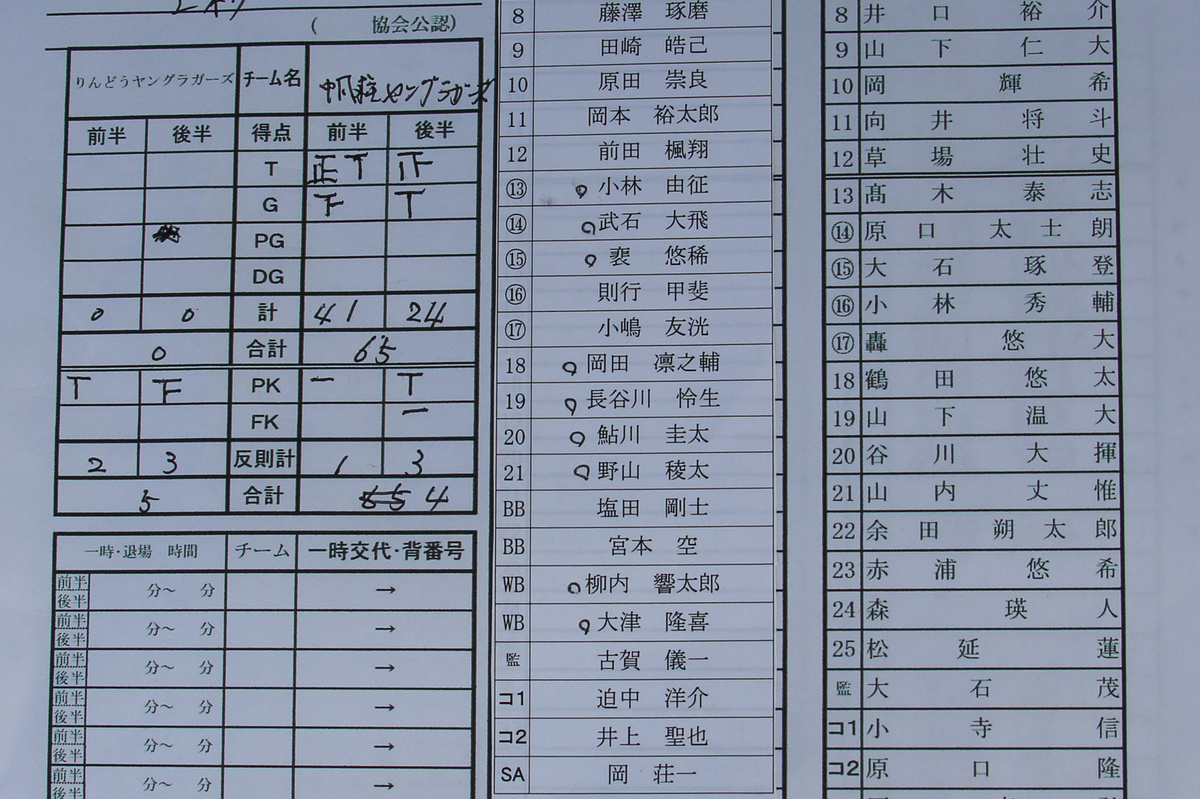 ( 協会公認)
りんどうヤングラガーズ チーム名 帆柱ヤングラガーズ
前半 後半 得点 前半 後半
T 正T 正
G 下 T
PG
DG
0 0 計 41 24
0 合計 65
T 下 PK 一 T
FK 一
2 3 反則計 1 3
5 合計 4
一時・退場 時間 チーム 一時交代・背番号
前半 後半 分〜 分 →
前半 後半 分〜 分 →
前半 後半 分〜 分 →
前半 後半 分〜 分 →
前半 後半 分〜 分 →
前半 後半 分〜 分 →
8 藤澤 琢磨
9 田崎 皓己
10 原田 崇良
11 岡本 裕太郎
12 前田 楓翔
⑬ 小林 由征
⑭ 武石 大飛
⑮ 裵 悠稀
⑯ 則行 甲斐
⑰ 小嶋 友洸
18 岡田 凛之輔
19 長谷川 怜生
20 鮎川 圭太
21 野山 稜太
BB 塩田 剛士
BB 宮本 空
WB 柳内 響太郎
WB 大津 隆喜
監 古賀 儀一
コ1 迫中 洋介
コ2 井上 聖也
SA 岡 荘一
8 井口裕介
9 山下仁大
10 岡輝希
11 向井将斗
12 草場壮史
13 髙木泰志
⑭ 原口太士朗
⑮ 大石琢登
⑯ 小林秀輔
⑰ 轟悠大
18 鶴田悠太
19 山下温大
20 谷川大揮
21 山内丈惟
22 余田朔太郎
23 赤浦悠希
24 森瑛人
25 松延蓮
監 大石茂
コ1 小寺信
コ2 原口隆